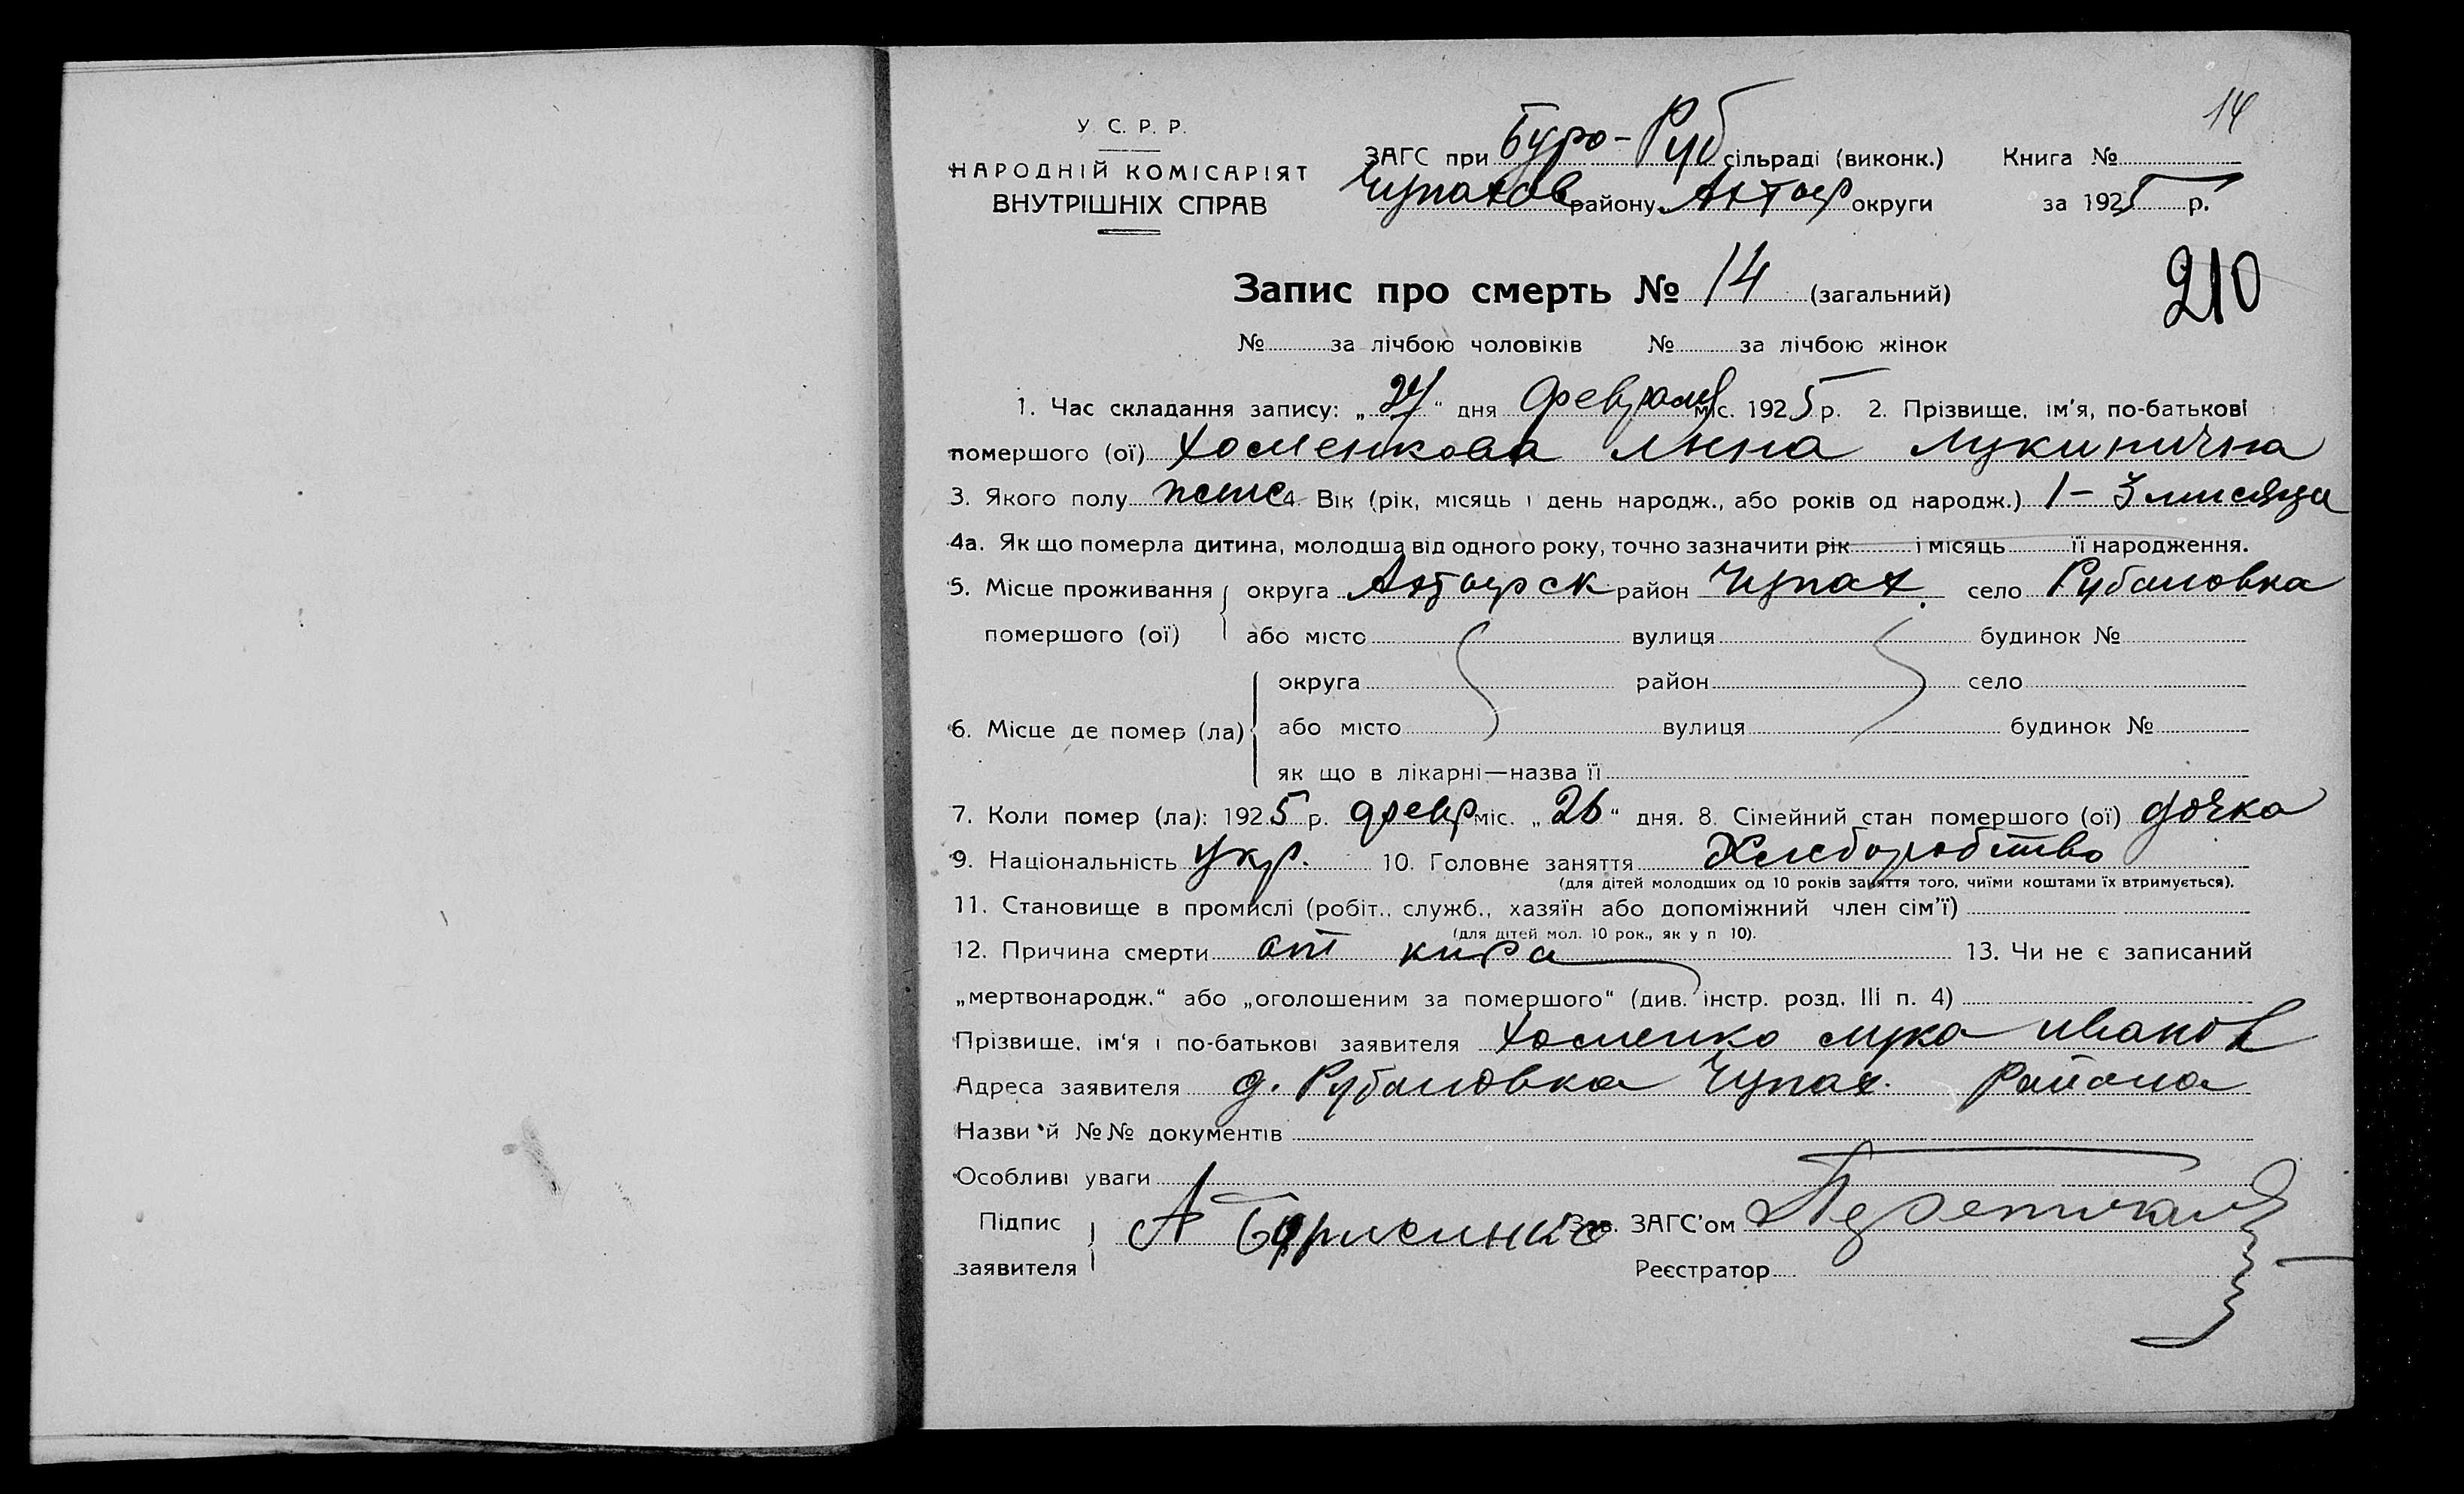 14
У. С. Р. Р.
НАРОДНІЙ КОМІСАРІЯТ
ВНУТРІШНІХ СПРАВ
ЗАГС при Буро-Руб сільраді (виконк.) Книга №
Чупахов району Ахтыр округи за 1925 р.
Запис про смерть № 14 (загальний)
210
№ за лічбою чоловіків № за лічбою жінок
1. Час складання запису: „27“ дня Февраля міс. 1925 р. 2. Прізвище, ім'я, по-батькові
помершого (ої) Хоменкова Анна Лукинична
3. Якого полу женс 4. Вік (рік, місяць і день народж., або років од народж.) 1 – 3 мисяца
4а. Як що померла дитина, молодша від одного року, точно зазначити рік і місяць її народження.
5. Місце проживання округа Ахтырск район Чупах. село Рубановка
помершого (ої) або місто вулиця будинок №
округа район село
6. Місце де помер (ла) або місто вулиця будинок №
як що в лікарні—назва її
7. Коли помер (ла): 1925 р. февр міс. „26“ дня. 8. Сімейний стан помершого (ої) дочка
9. Національність Укр. 10. Головне заняття Хлеборобство
(для дітей молодших од 10 років заняття того, чиїми коштами їх втримується).
11. Становище в промислі (робіт., служб., хазяїн або допоміжний член сім'ї)
(для дітей мол. 10 рок., як у п 10).
12. Причина смерти от кира 13. Чи не є записаний
„мертвонародж.“ або „оголошеним за помершого“ (див. інстр. розд. III п. 4)
Прізвище, ім'я і по-батькові заявителя Хоменко Лука Иванов
Адреса заявителя д. Рубановка Чупах. Района
Назви й №№ документів
Особливі уваги
Підпис
заявителя А Борисинко Зав. ЗАГС'ом
Реєстратор